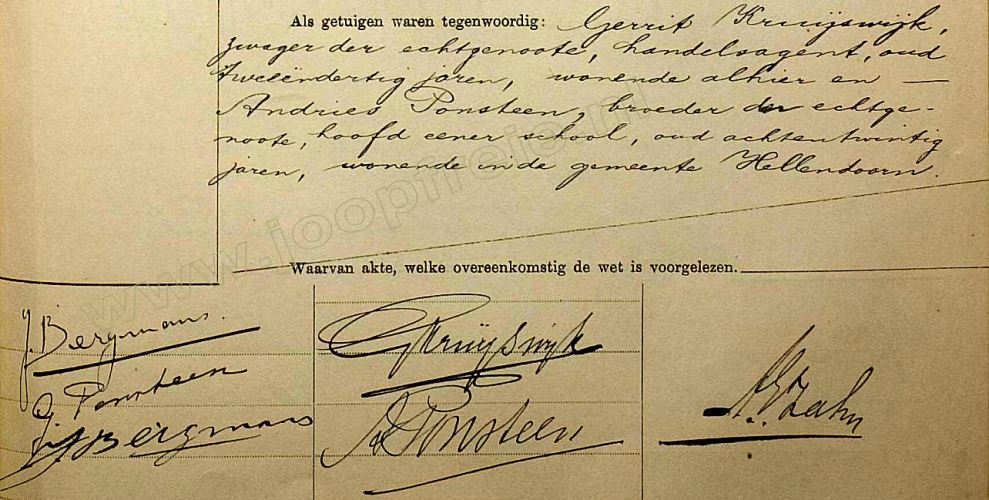 Als getuigen waren tegenwoordig: Gerrit Kruijswijk,
zwager der echtgenoote, handelsagent, oud
tweeëndertig jaren, wonende alhier en —
Andries Ponsteen, broeder der echtge-
noote, hoofd eener school, oud achtentwintig
jaren, wonende in de gemeente Hellendoorn.
Waarvan akte, welke overeenkomstig de wet is voorgelezen.
J. Bergmans.
G Kruijswijk
J. Ponsteen
Bergmans
A Ponsteen
Zahn